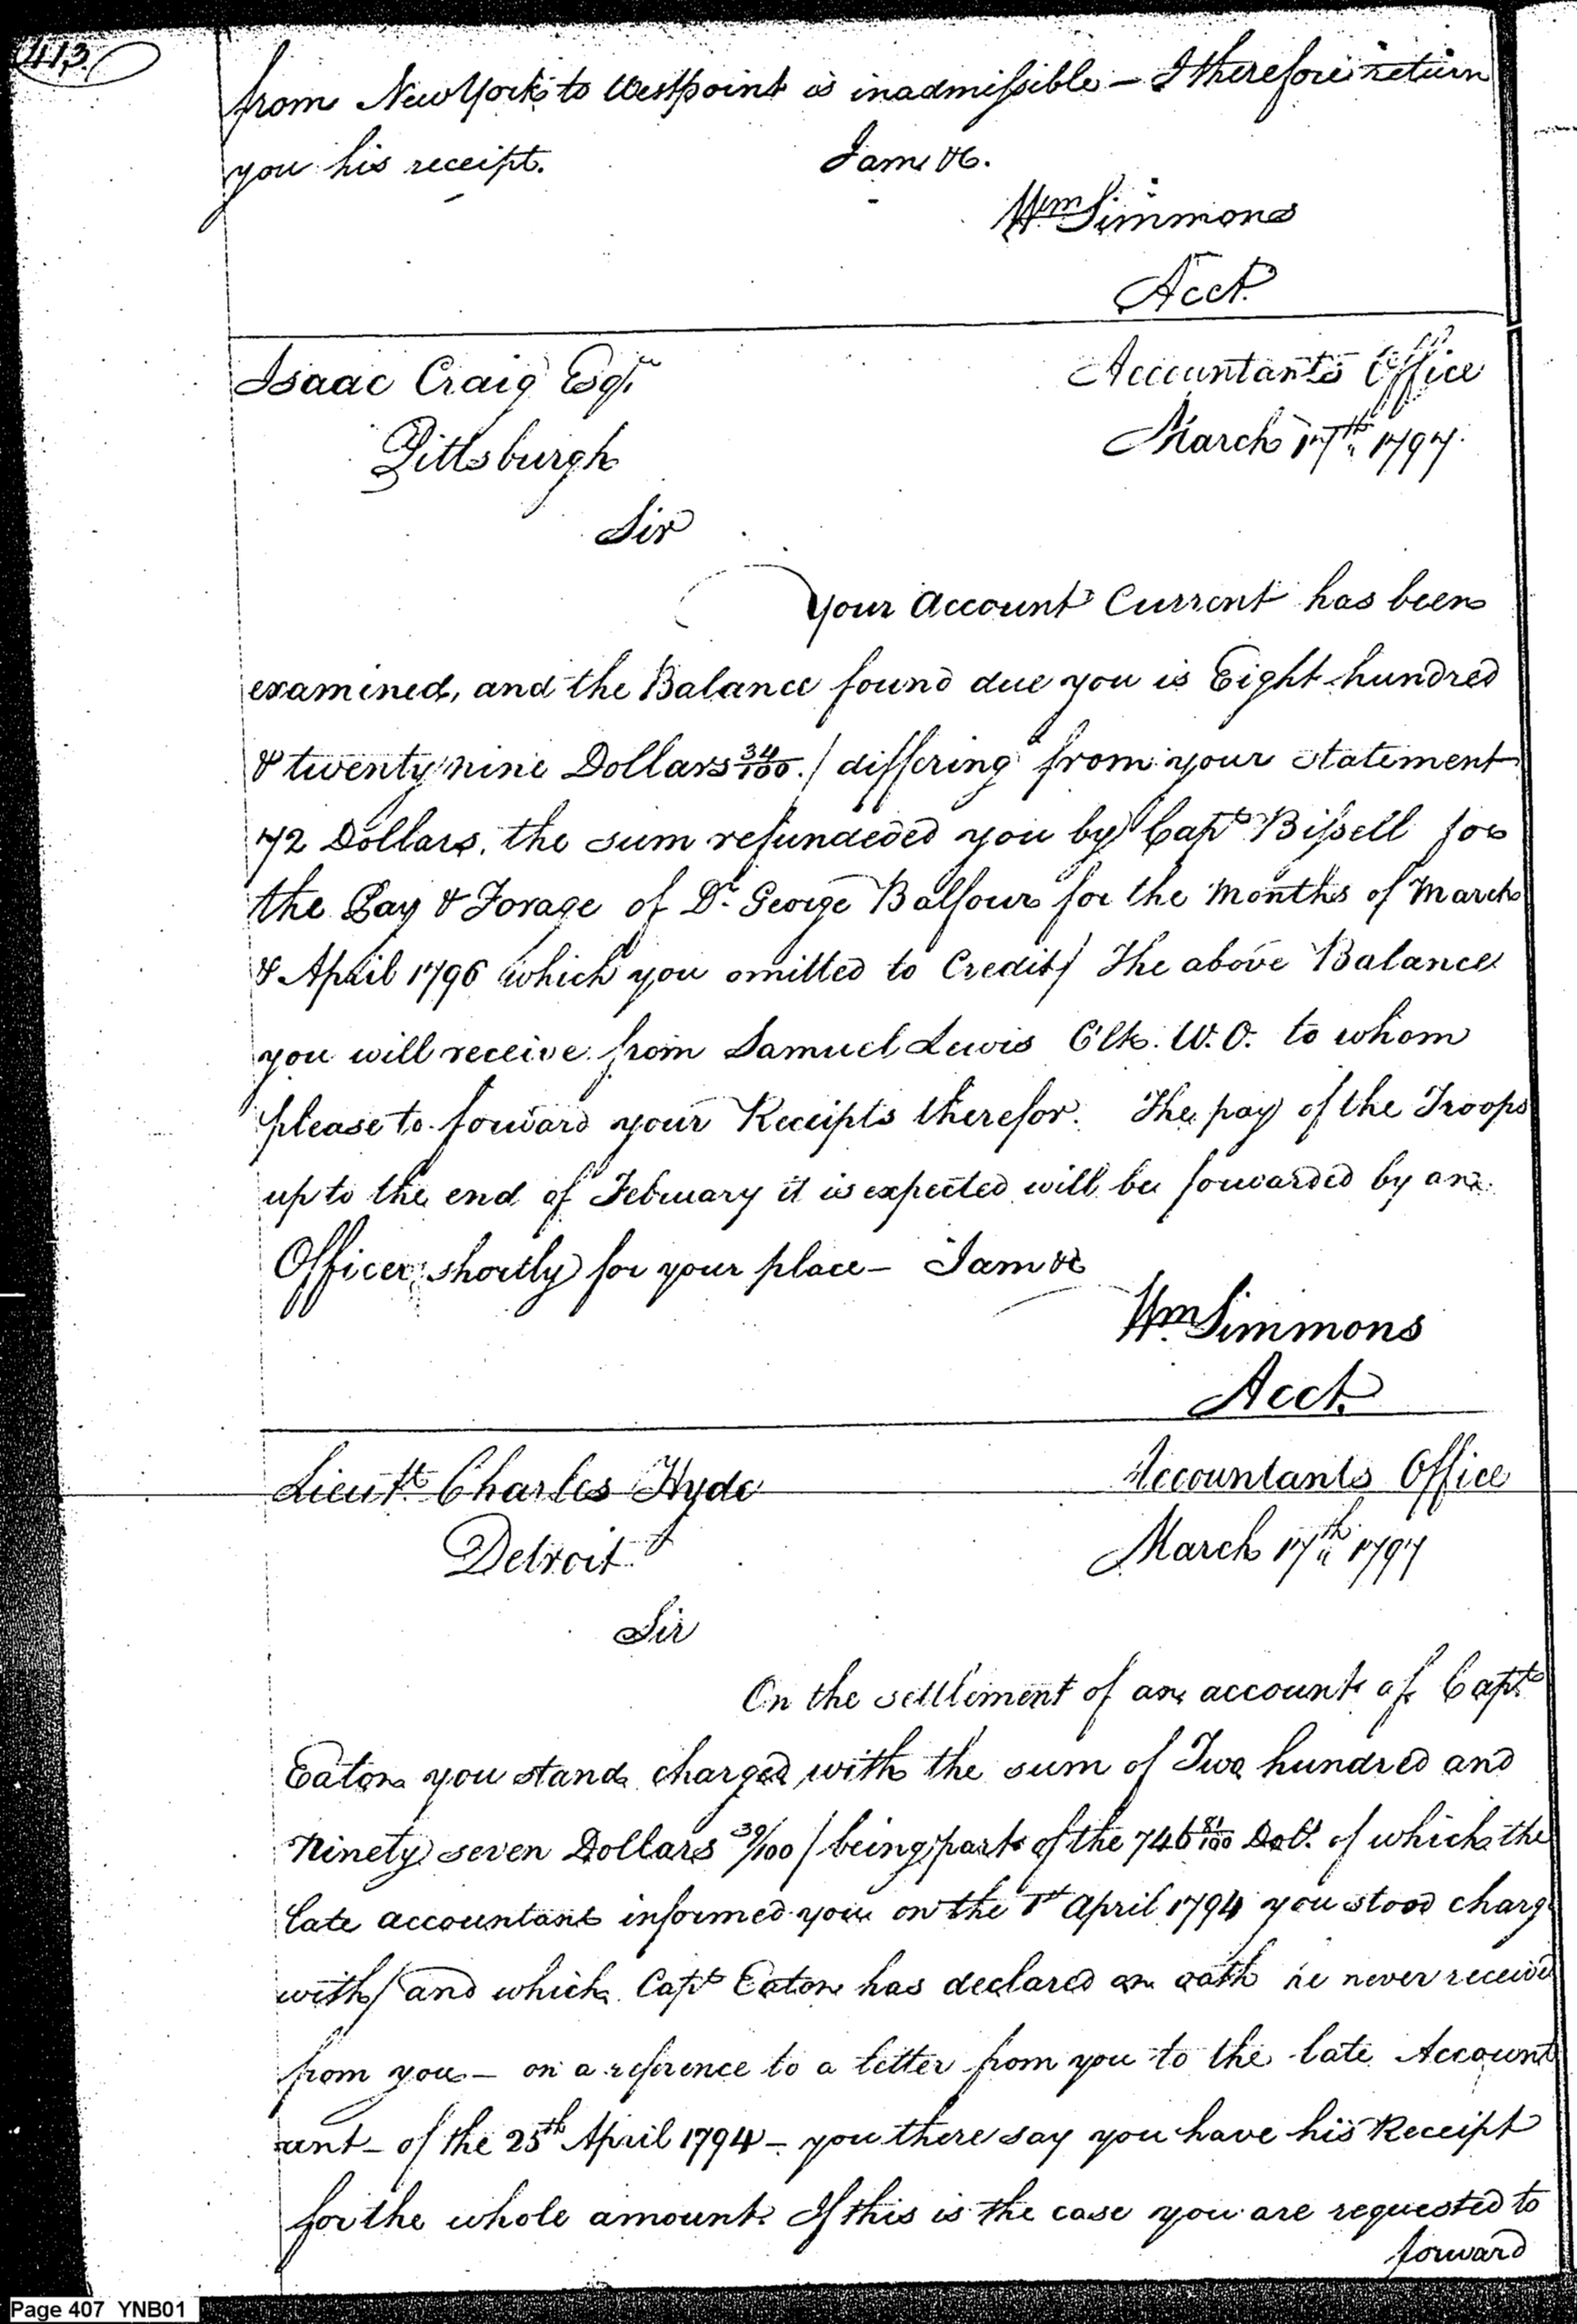 413.
from New York to Westpoint is inadmissible — I therefore return
you his receipt. I am &c.
Wm Simmons
Acct.
Isaac Craig Esqr. Accountants Office
Pittsburgh March 17th 1797.
Sir
Your Account Current has been
examined, and the Balance found due you is Eight hundred
& twenty nine Dollars 34/100. / differing from your statement
72 Dollars, the sum refundeded you by Capt Bissell for
the Pay & Forage of Dr. George Balfour for the Months of March
& April 1796 which you omitted to Credit / The above Balance
you will receive from Samuel Lewis Clk. W.O. to whom
please to forward your Receipts therefor. The pay of the Troops
up to the end of February it is expected will be forwarded by an
Officer shortly for your place — I am &c
Wm. Simmons
Acct.
Lieutt. Charles Hyde Accountants Office
Detroit March 17th 1797
Sir
On the settlement of an account of Capt
Eaton you stand charged with the sum of Two hundred and
Ninety seven Dollars 39/100 / being part of the 746 81/100 Dols. of which the
late accountant informed you on the 1st April 1794 you stood charg
with / and which Capt Eaton has declared on oath he never received
from you — on a reference to a letter from you to the late Account
ant — of the 25th April 1794 — you there say you have his Receipt
for the whole amount. If this is the case you are requested to
forward
Page 407 YNB01